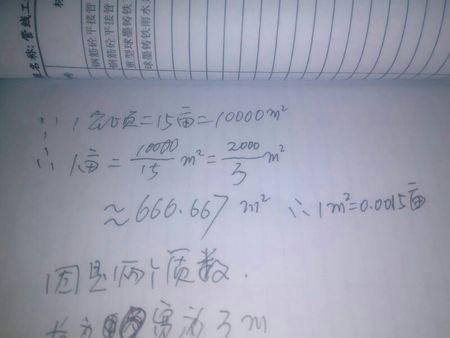 钢筋砼平接管
钢筋砼平接管
重型球墨铸铁
球墨铸铁雨水
∵ 1公顷=15亩=10000m²
∴ 1亩=10000/15 m²=2000/3 m²
≈666.667 m² ∴1m²=0.0015亩
因是两个质数.
宽为3m